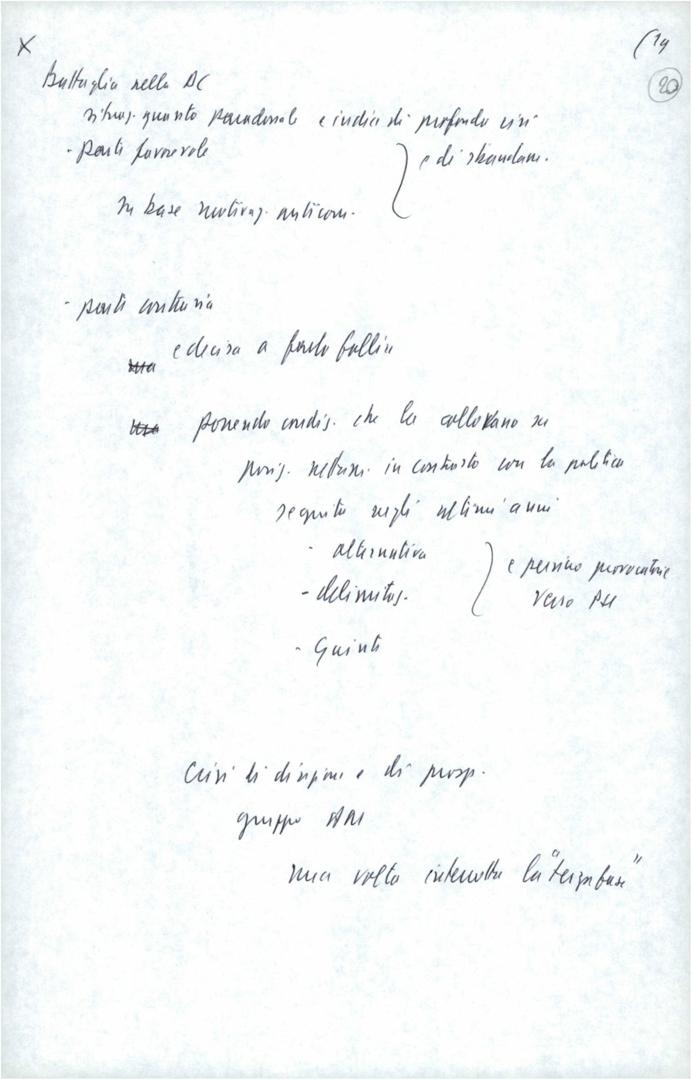 X
(19
20
Battaglia nella DC
situaz. quanto paradossale e indice di profonda crisi
- parte favorevole
e di sbandam.
in base motivaz. anticom.
- parte contraria
e decisa a farla fallire
ponendo condiz. che la collocano su
posiz. nettam. in contrasto con la politica
seguita negli ultimi anni
- alternativa
- delimitaz.
e persino provocatorie
verso PSI
- Giunte
Crisi di direzione e di prosp.
gruppo
una volta interrotta la "terza fase"